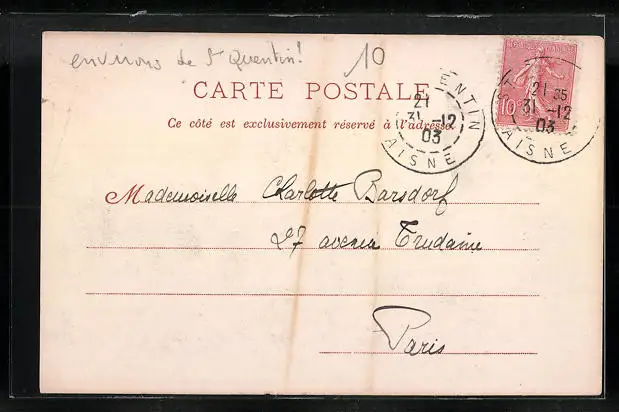 environs de St Quentin!
10
CARTE POSTALE
Ce côté est exclusivement réservé à l'adresse.
ENTIN
21
31 -12
03
AISNE
10c
21 35
31 -12
03
AISNE
Mademoiselle Charlotte Barsdorf
27 avenue Trudaine
Paris